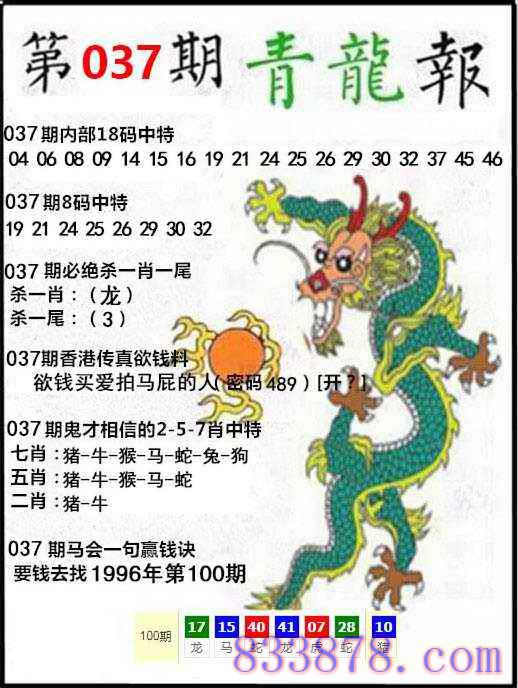 第037期青龍報
037期内部18码中特
04 06 08 09 14 15 16 19 21 24 25 26 29 30 32 37 45 46
037期8码中特
19 21 24 25 26 29 30 32
037期必绝杀一肖一尾
杀一肖:(龙)
杀一尾:(3)
037期香港传真欲钱料
欲钱买爱拍马屁的人(密码489)[开?]
037期鬼才相信的2-5-7肖中特
七肖:猪-牛-猴-马-蛇-兔-狗
五肖:猪-牛-猴-马-蛇
二肖:猪-牛
037期马会一句赢钱诀
要钱去找1996年第100期
100期 17 15 40 41 07 28 10
龙 马 蛇 龙 虎 蛇 猪
833878.com